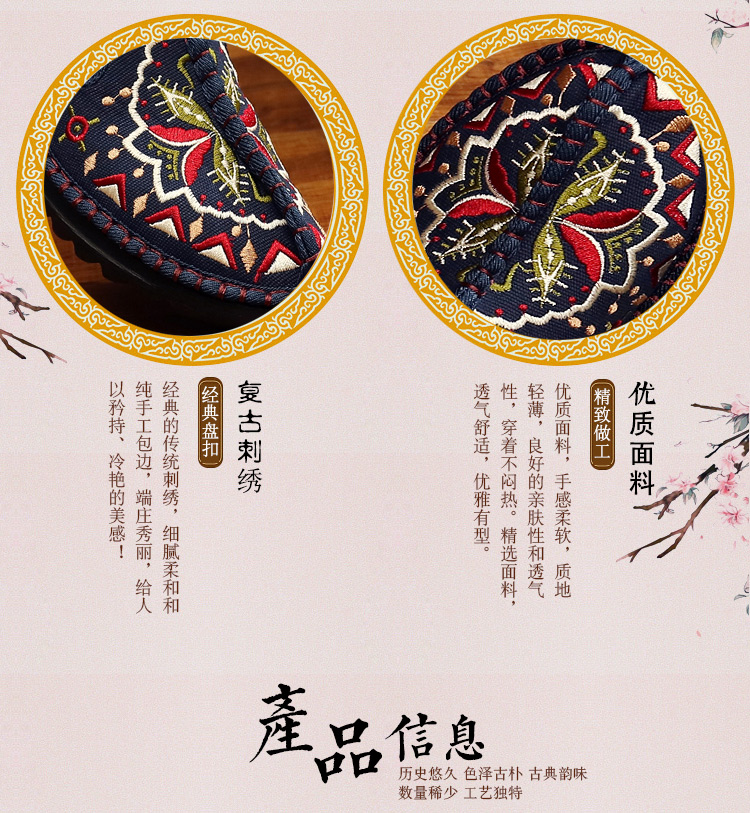 优质面料
精致做工
优质面料，手感柔软，质地
轻薄，良好的亲肤性和透气
性，穿着不闷热。精选面料，
透气舒适，优雅有型。
复古刺绣
经典盘扣
经典的传统刺绣，细腻柔和和
纯手工包边，端庄秀丽，给人
以矜持、冷艳的美感！
產品信息
历史悠久 色泽古朴 古典韵味
数量稀少 工艺独特